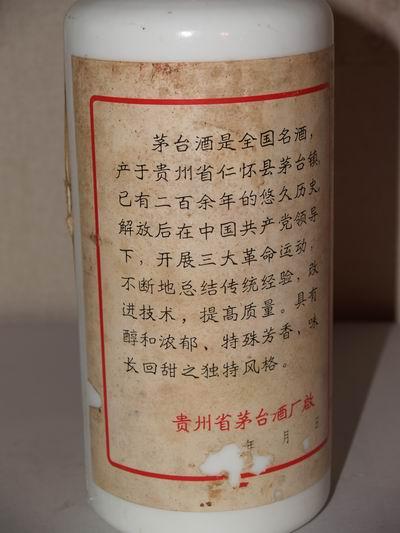 茅台酒是全国名酒，
产于贵州省仁怀县茅台镇，
已有二百余年的悠久历史，
解放后在中国共产党领导
下，开展三大革命运动，
不断地总结传统经验，改
进技术，提高质量。具有
醇和浓郁、特殊芳香，味
长回甜之独特风格。
贵州省茅台酒厂啟
年 月 日